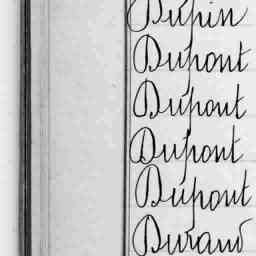 Dupin
Dupont
Dupont
Dupont
Dupont
Durand